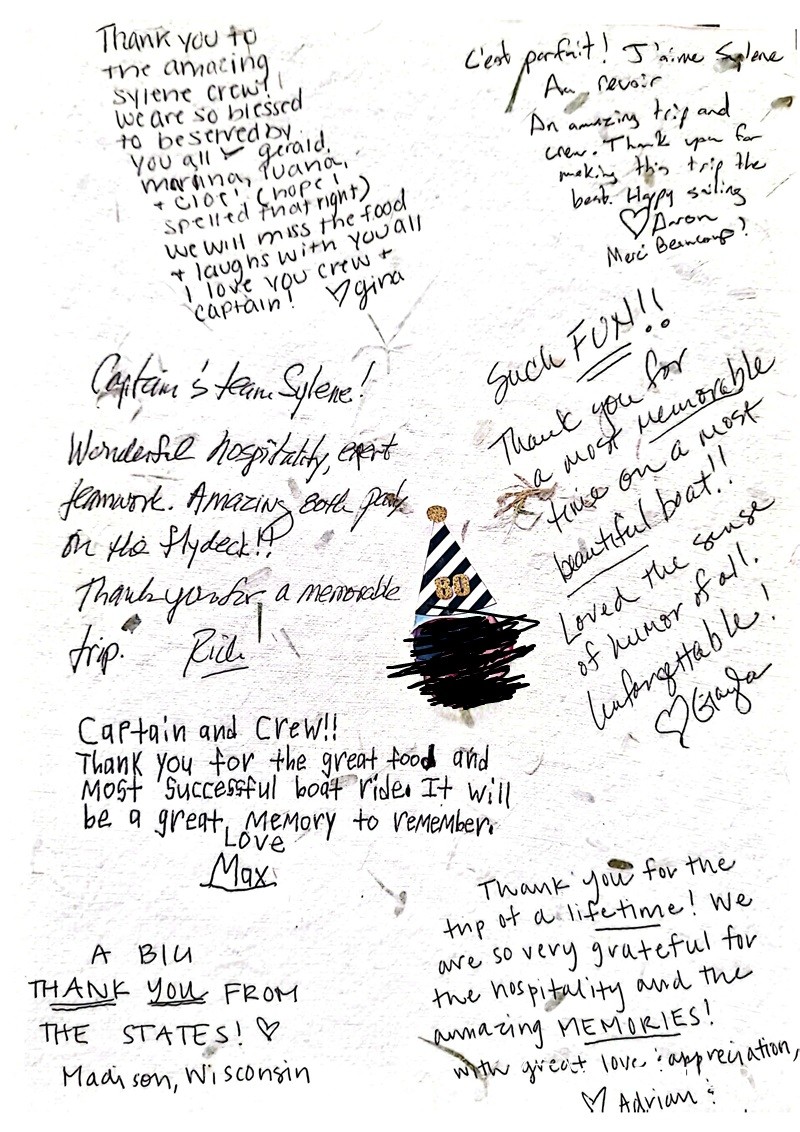 Thank you to
the amazing
sylene crew!!
we are so blessed
to be served by
you all gerald,
marina, Ivana,
+ cloe! (hope i
spelled that right)
we will miss the food
+ laughs with you all
I love you crew +
captain! ♡ gina
C'est parfait! J'aime Sylene
Au revoir
An amazing trip and
crew. Thank you for
making this trip the
best. Happy sailing
♡ Aaron
Merci Beaucoup!
Captain's team Sylene!
Wonderful hospitality, expert
teamwork. Amazing 80th party
on the flydeck!!
Thank you for a memorable
trip. Rich
Such FUN!!
Thank you for
a most memorable
time on a most
beautiful boat!!
Loved the sense
of humor of all.
Unforgettable!
♡
80
Captain and Crew!!
Thank you for the great food and
Most successful boat ride. It will
be a great Memory to remember.
Love
Max
A BIG
THANK YOU FROM
THE STATES! ♡
Madison, Wisconsin
Thank you for the
trip of a lifetime! We
are so very grateful for
the hospitality and the
amazing MEMORIES!
with great love & appreciation,
♡ Adrian &